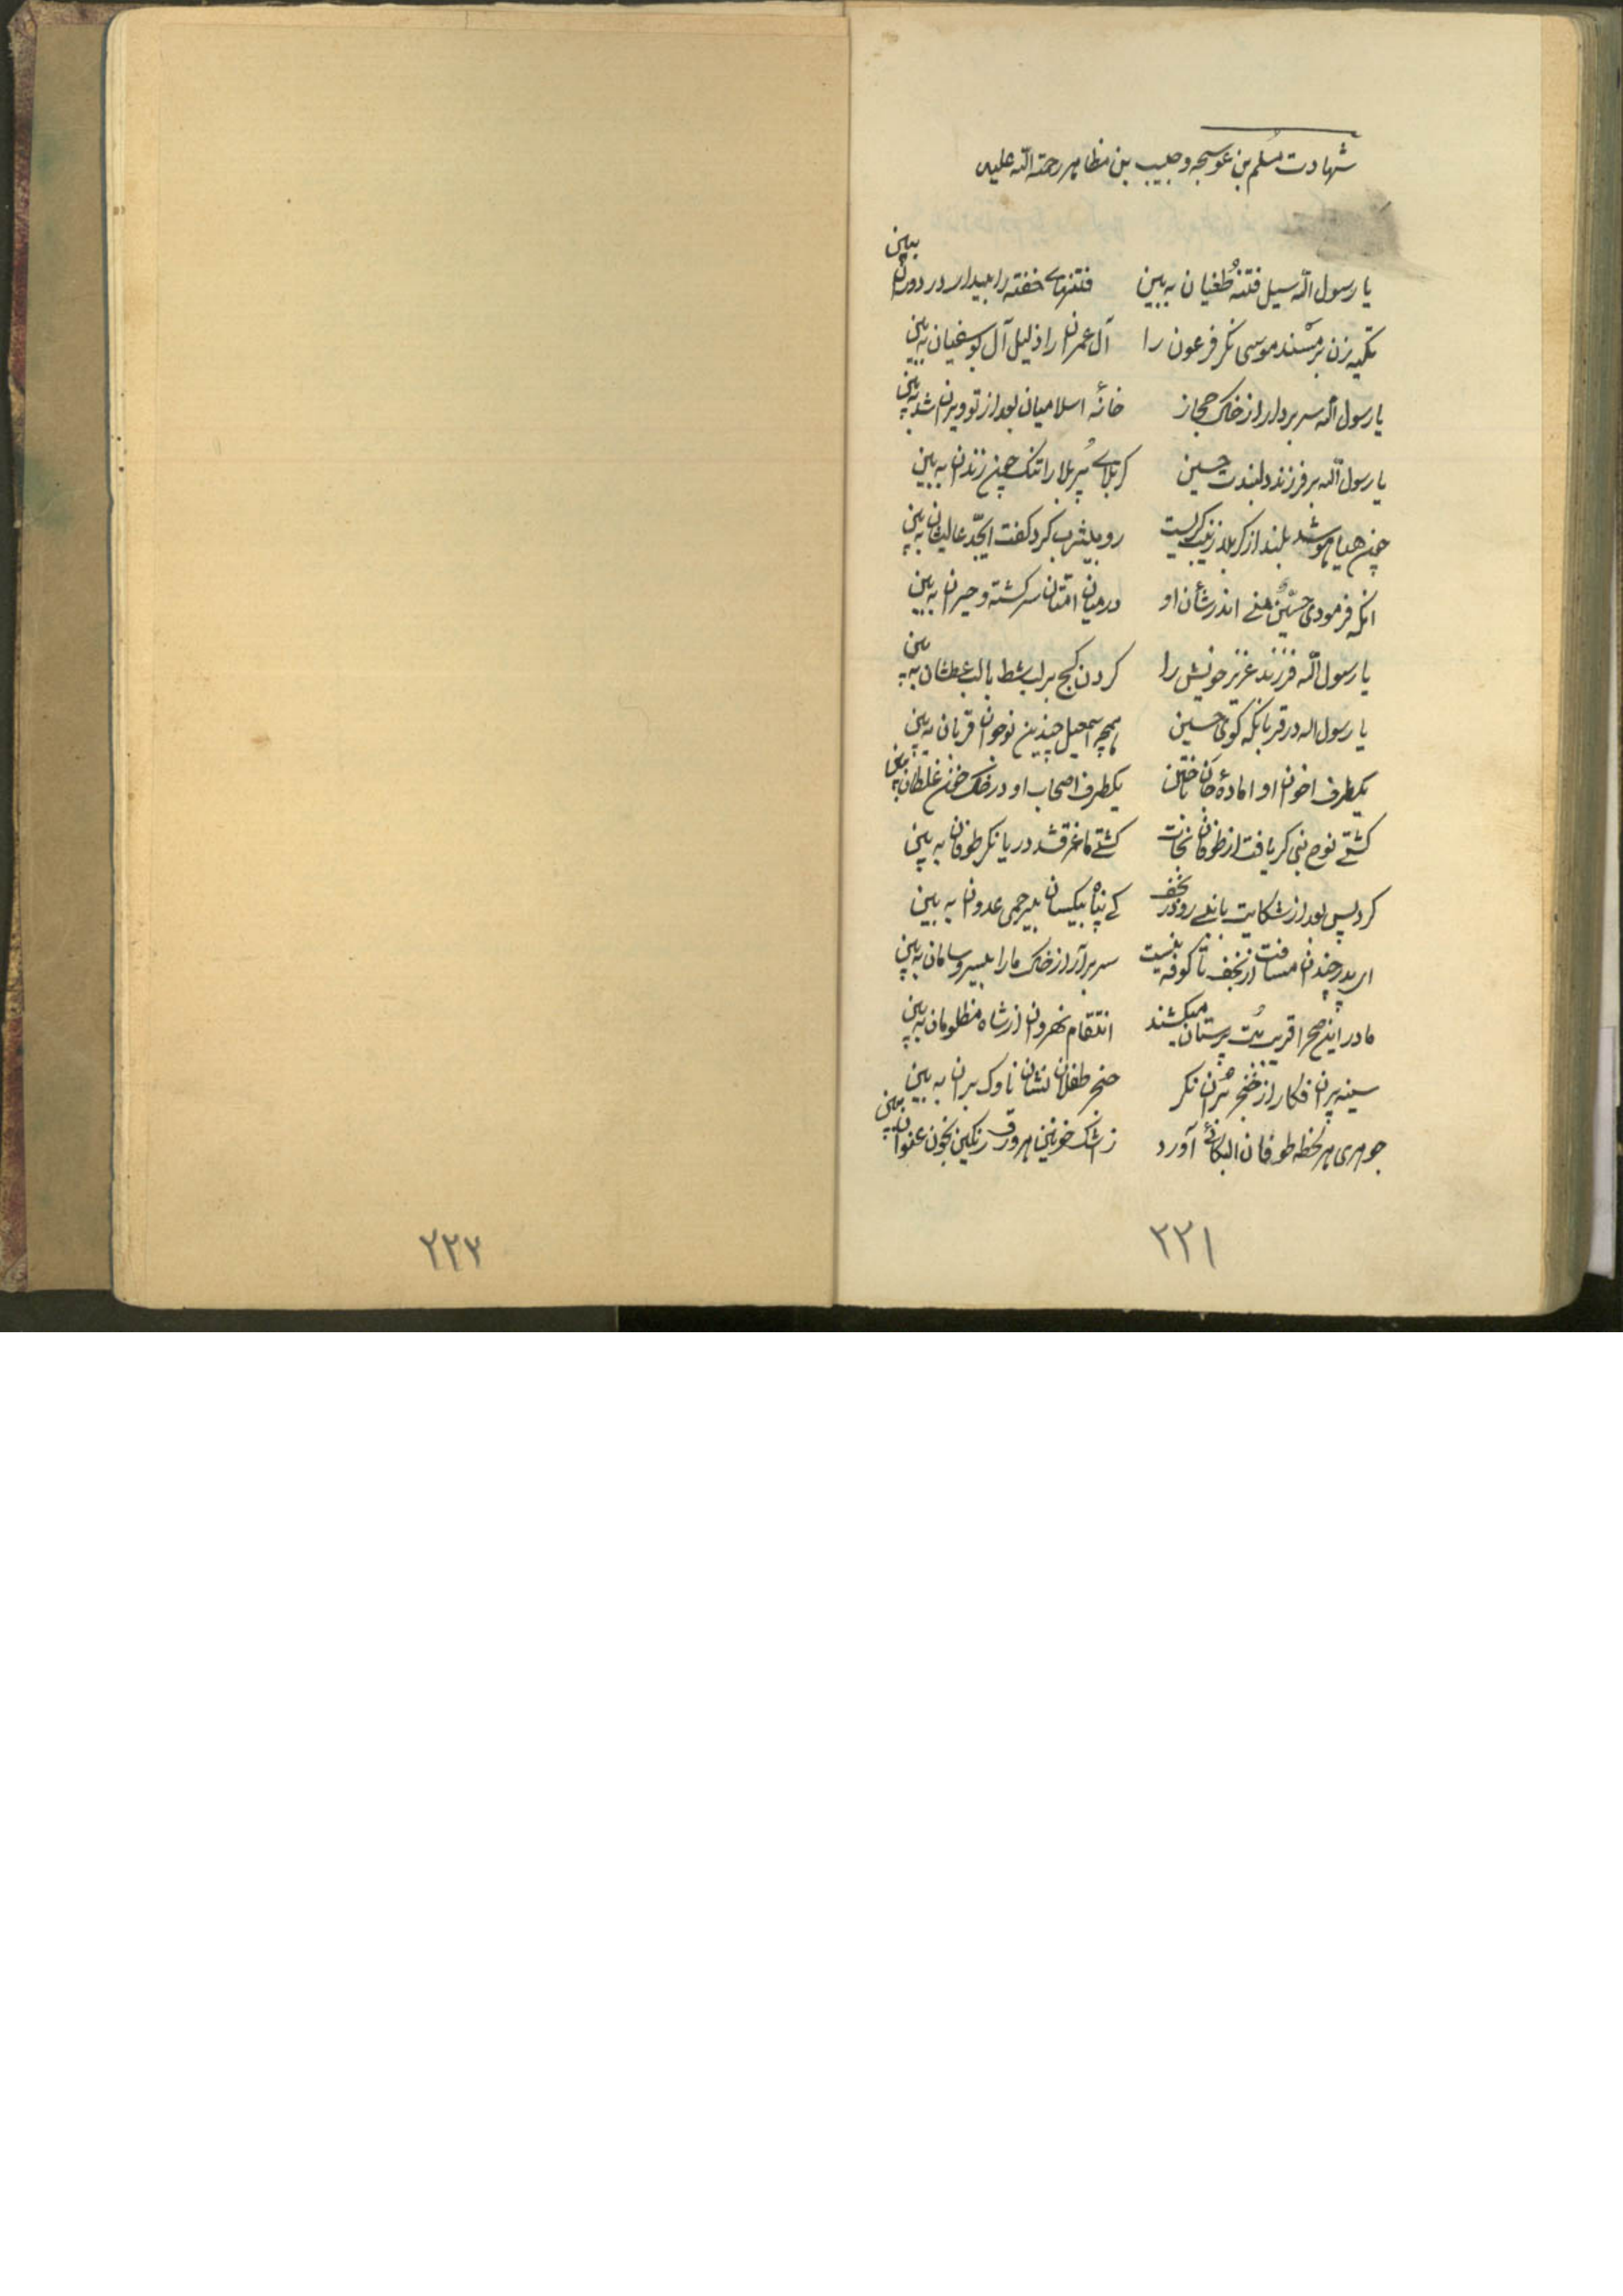 شهادت مسلم بن عوسجه و حبیب بن مظاهر رحمة الله علیه
یا رسول الله سیل فتنهٔ طغیان به بین فتنهای خفته را بیدار در دوران ببین
تکیه زن بر مسند موسی نگر فرعون را آل عمران را ذلیل آل بوسفیان به بین
یا رسول الله سر بردار از خاک حجاز خانهٔ اسلامیان بعد از تو ویران شد به بین
یا رسول الله بر فرزند دلبندت حسین کربلای پُر بلا را تنک چون زندان به بین
چون هیاهو شد بلند از کربلا زینب کریست رو به یثرب کرد کفت ایجّد عالیشان به بین
آنکه فرمودی حسینُ منی اندر شأن او در میان امتان سرکشته و حیران به بین
یا رسول الله فرزند عزیز خویش را کردن کج بر لب شط با لب عطشان به بین
یا رسول اله در قربانکه کوی حسین همچه اسمعیل چندین نوجوان قربان به بین
یکطرف اخوان او امادهٔ جان باختن یکطرف اصحاب او در خاک خون غلطان به بین
کشتی نوح نبی کر یافت از طوفان نجات کشتی ما غرقشد دریا نکر طوفان به بین
کرد پس بعد از شکایت با نبی رو در نجف کی پناه بیکسان بیرحمی عدوان به بین
ای پدر چندان مسافت از نجف تا کوفه نیست سر برآر از خاک ما را بیسر و سامان به بین
ما در این صحرا قریب بُت پرستان میکشند انتقام نهروان از شاه مظلومان به بین
سینه پیران فکار از خنجر برّان نکر حنجر طفلان نشان ناوک بران به بین
جوهری هر لحظه طوفان البکائی آورد ز اشک خونین هر ورق رنکین بخون عنوان به بین
۲۲۱
۲۲۳